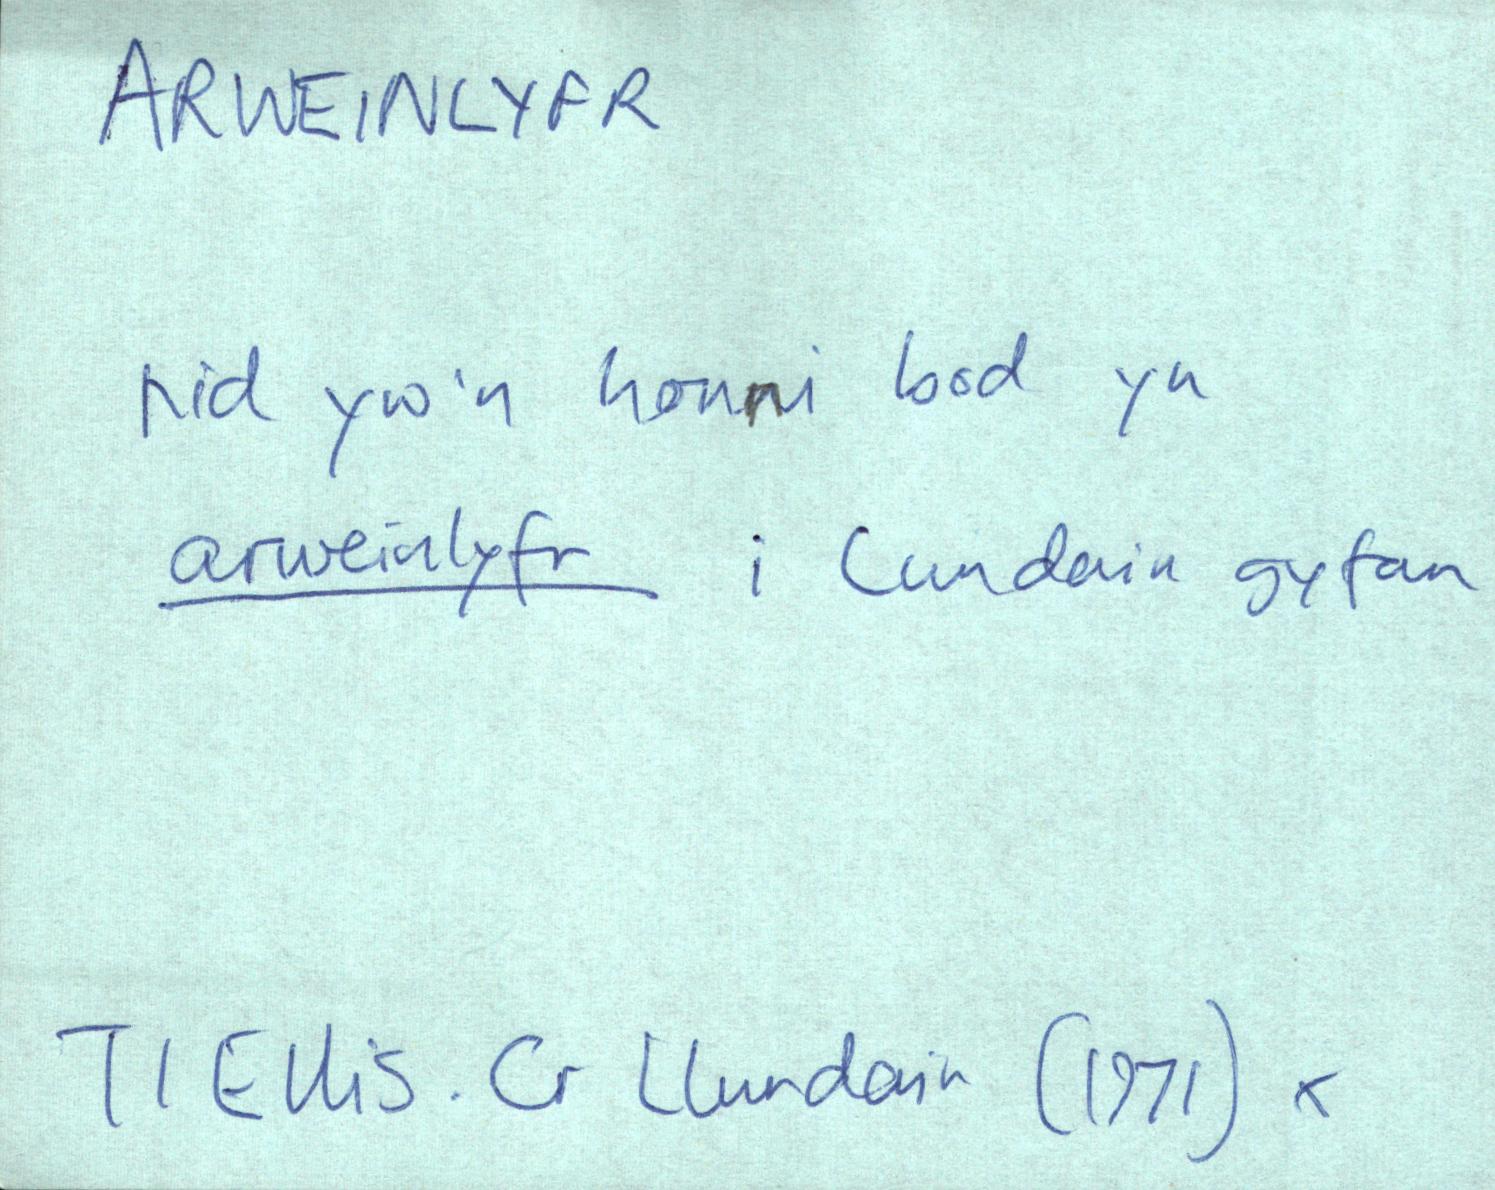 ARWEINLYFR
nid yw'n honni bod yn
arweinlyfr i Lundain gyfan
TI Ellis. Cr Llundain (1971) x